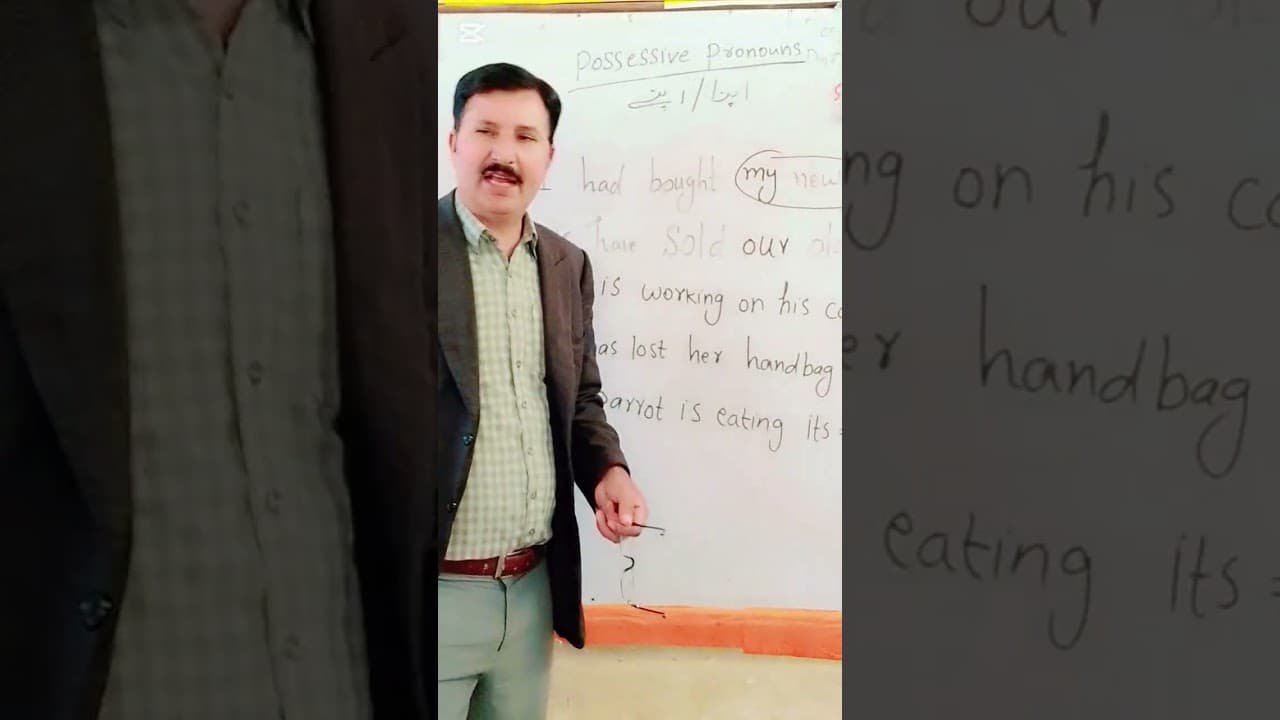 Possessive Pronouns
اپنا / اپنے
had bought my new
have sold our
is working on his
as lost her handbag
parrot is eating its =